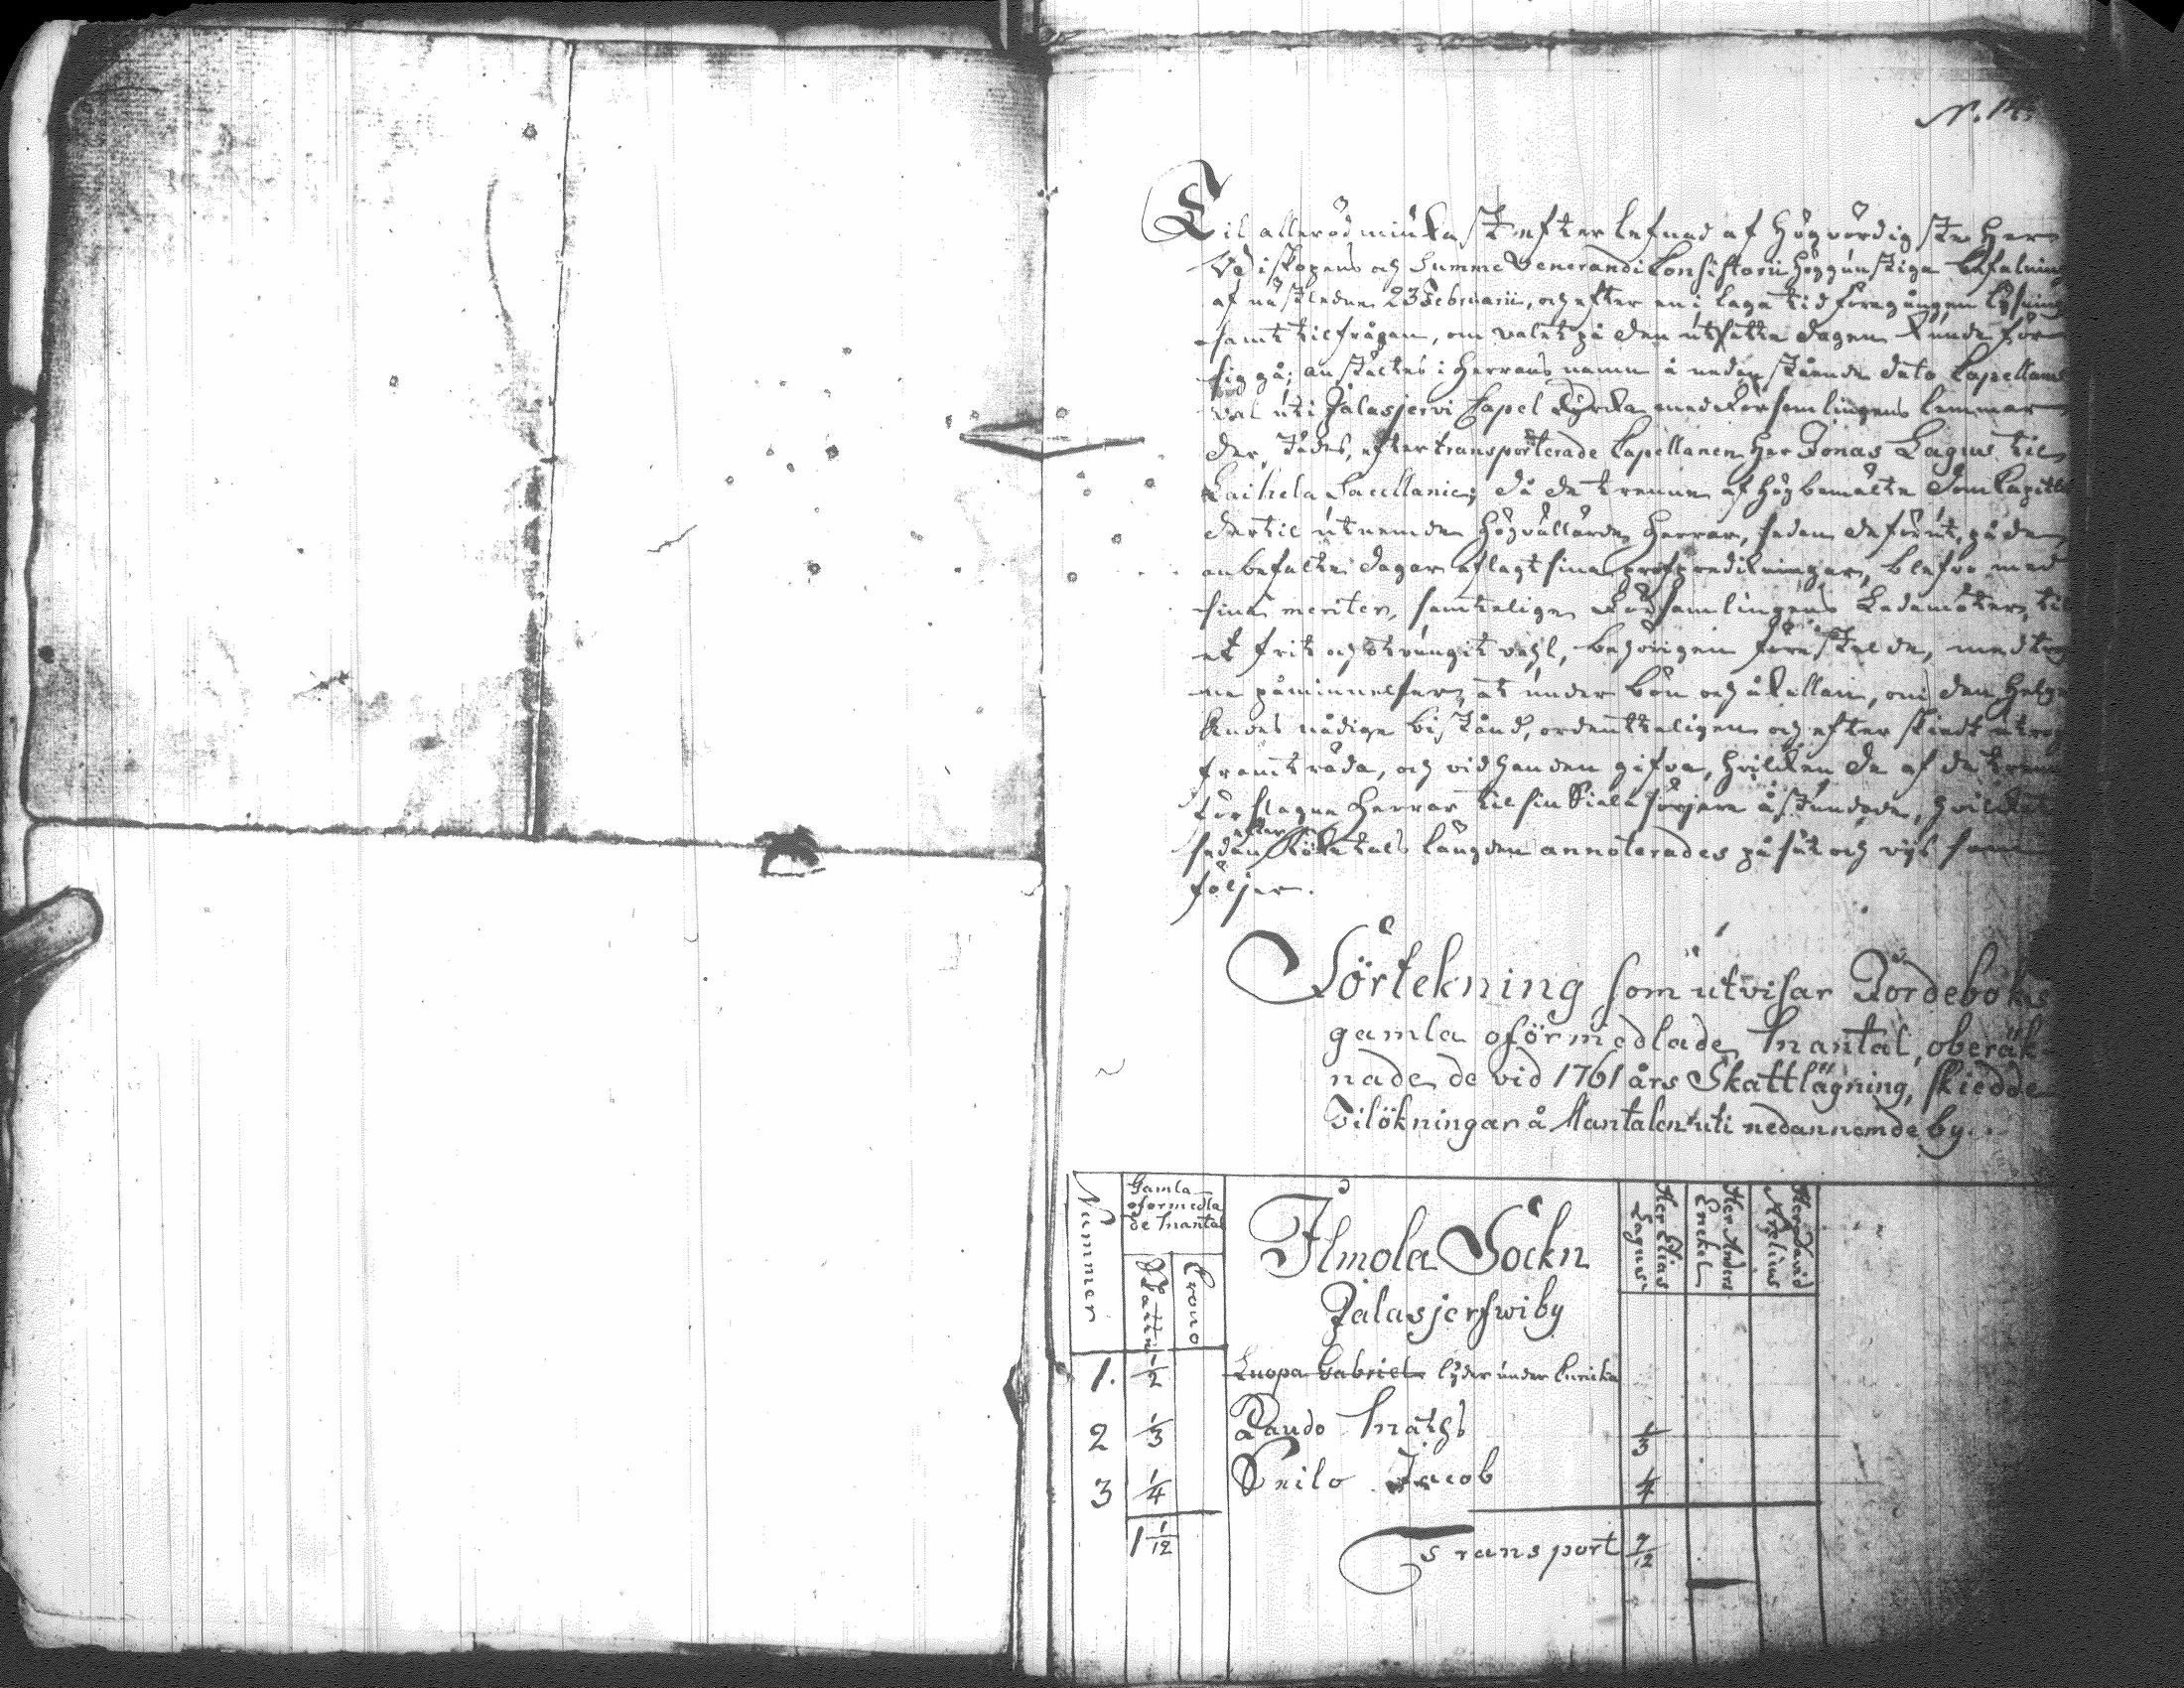 N. 14
Til allerödmiukast efterlefnad af Högvördigste Herr
Biskopens och Summe Venerandi Consistorii höggunstiga befalning
af nästledne 23 Februarii, och efter en i laga tid föregången lysning
samt tilfrågan, om valet på den utsatta dagen kunde för
sig gå; anstältes i Herrans namn å nedanstående dato Capellans
val uti Jalasjervi Capel Kyrka med Församlingens lemmar
der städes, efter transporterade Capellanen Her Jonas Lagus til
Laihela Sacellanie; då de trenne af högbemälte Dom Capitlet
dertil utnemde Högvällärde Herrar, sedan de förut, på de
anbefalte dagar aflagt sina profpredikningar, blefvo med
sina meriter, samtelige Församlingens Ledamöter, til
et frit och otvungit val, behörigen förestelde, med
ne påminnelser, at under bön och åkallan, om den Helge
Andes nådige bistånd, ordentteligen och efter skiedt
framträda, och vid handen gifva, hvilken de af de trenne
förslagne Herrar til sin Siälasörjare åstundade, hvilket
sedan efter Röketals längden annoterades på sätt och vijs som
följer.
Förtekning som utvisar Jordeboks
gamla oförmedlade Mantal, oberäk-
nade de vid 1761 års Skattlägning, skiedde
Tilökningar å Mantalen uti nedannemde by.
Nummer
Gamla
oformedla
de Mantal
Skatte
Crono
Ilmola Sockn
Jalasjerfwi by
Her Elias
Lagus
Her Anders
Enckel
Her David
1. 1/2 Luopa Gabriel lyder under Curicka
2 1/3 Rando Maths 1/3
3 1/4 Pnilo Jacob 1/4
1 1/12 Transport 7/12